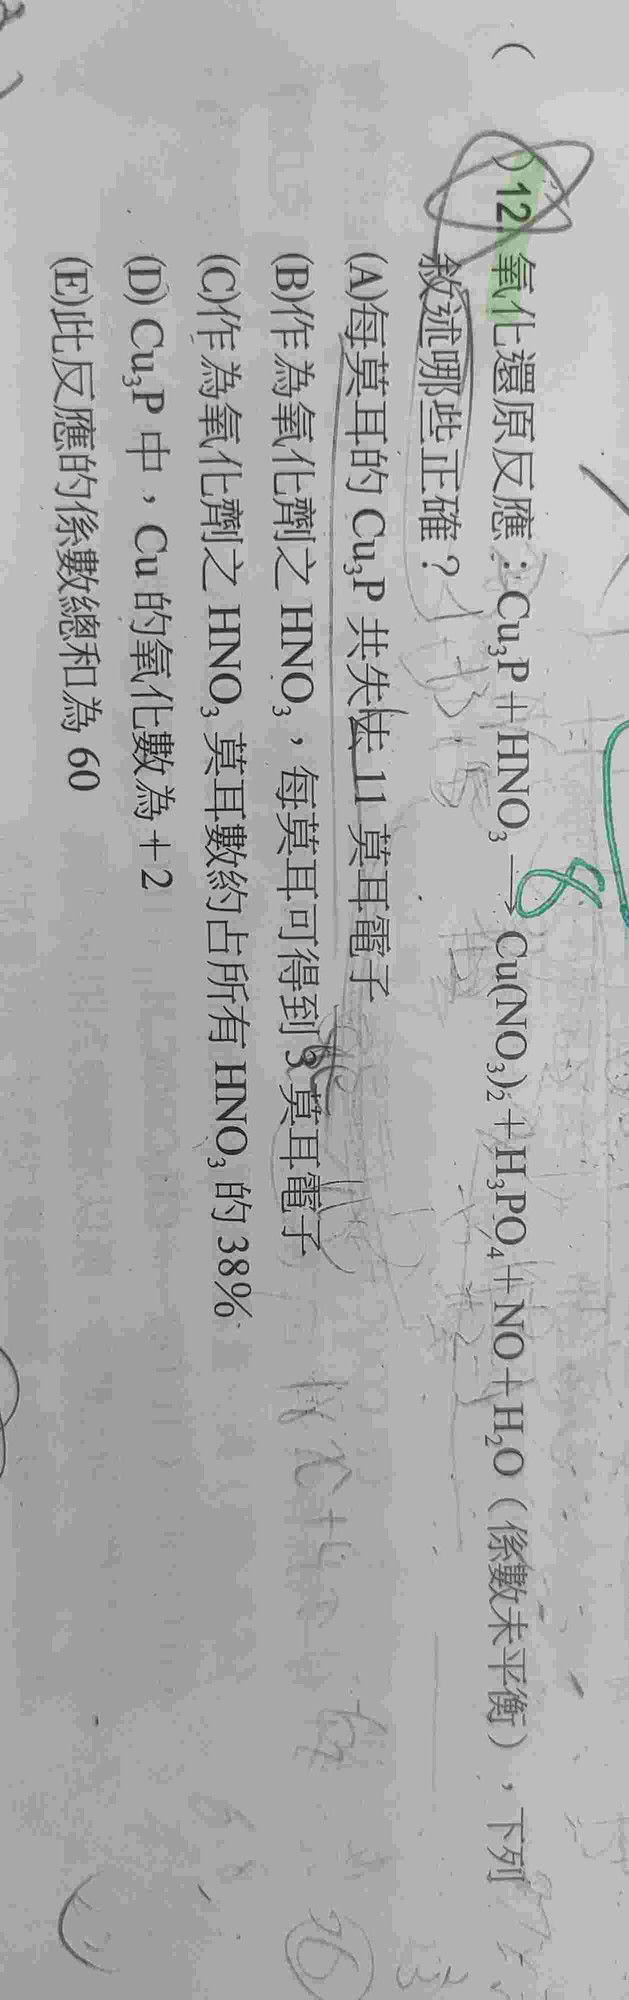 ( )12. 氧化還原反應：Cu₃P＋HNO₃ → Cu(NO₃)₂＋H₃PO₄＋NO＋H₂O（係數未平衡），下列
敘述哪些正確？
(A)每莫耳的 Cu₃P 共失去 11 莫耳電子
(B)作為氧化劑之 HNO₃，每莫耳可得到 3 莫耳電子
(C)作為氧化劑之 HNO₃ 莫耳數約占所有 HNO₃ 的 38%
(D) Cu₃P 中，Cu 的氧化數為＋2
(E)此反應的係數總和為 60
8
16